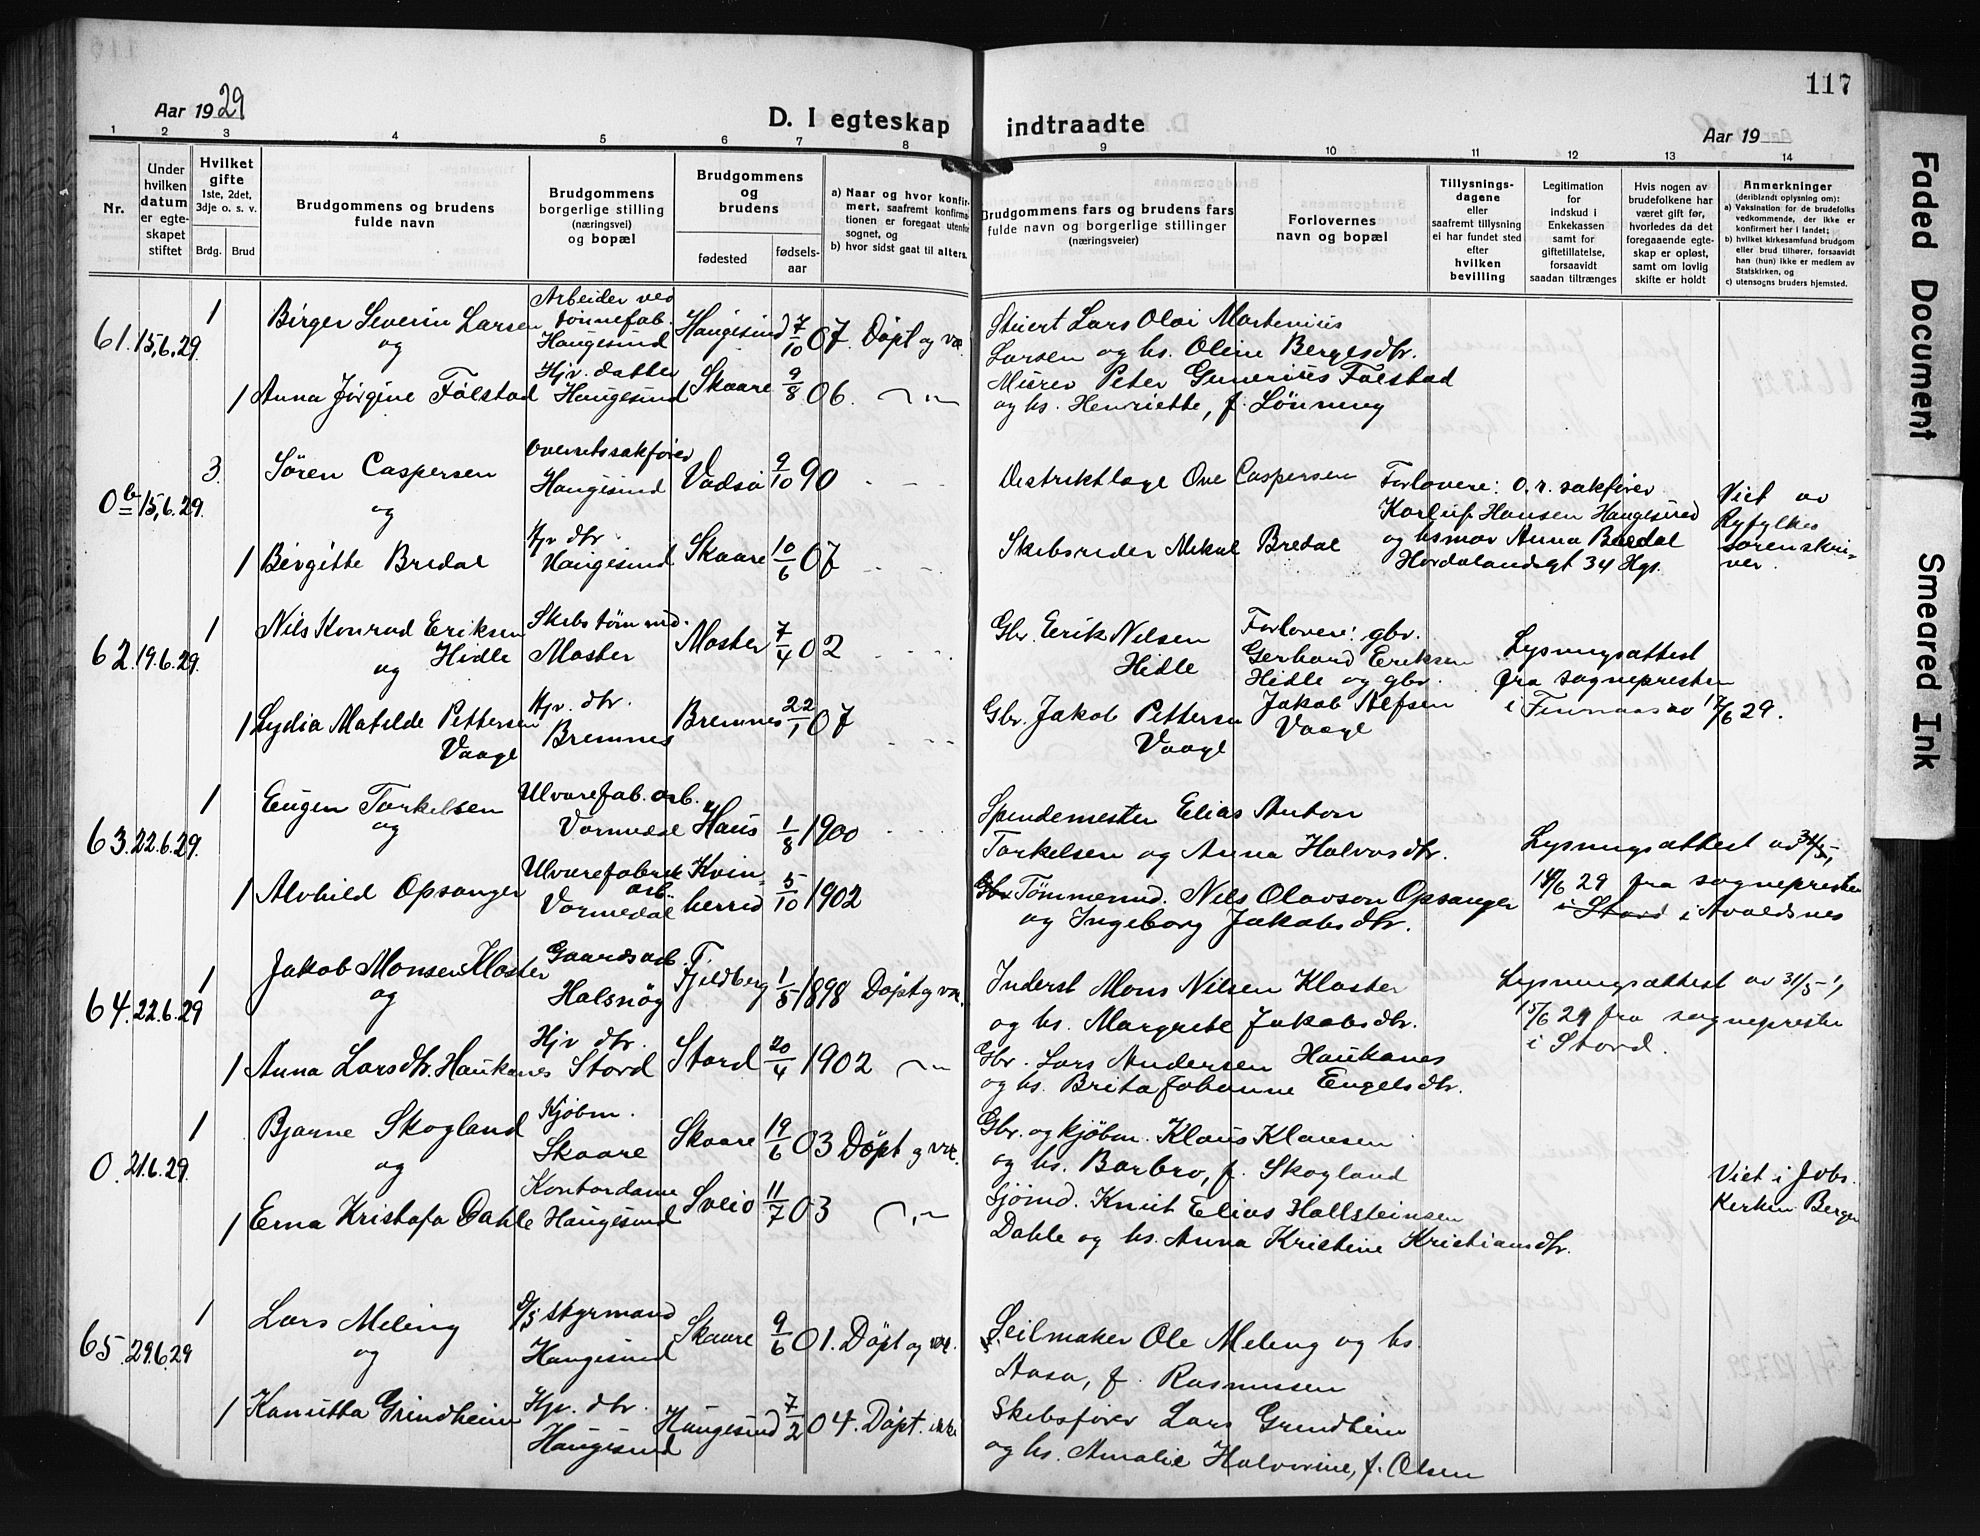 117
Aar 1929
D. I egteskap indtraadte
Aar 19
1 2 3 4 5 6 7 8 9 10 11 12 13 14
Nr.
Under hvilken datum er egteskapet stiftet
Hvilket gifte
1ste, 2det, 3dje o. s. v.
Brdg. Brud
Brudgommens og brudens fulde navn
Brudgommens borgerlige stilling (næringsvei) og bopæl
Brudgommens og brudens
fødested
fødsels-aar
a) Naar og hvor konfirmert, saafremt konfirmationen er foregaat utenfor sognet, og
b) hvor sidst gaat til alters.
Brudgommens fars og brudens fars fulde navn og borgerlige stillinger (næringsveier)
Forlovernes navn og bopæl
Tillysningsdagene eller saafremt tillysning ei har fundet sted efter hvilken bevilling
Legitimation for indskud i Enkekassen samt for giftetillatelse, forsaavidt saadan tiltrænges
Hvis nogen av brudefolkene har været gift før, hvorledes da det foregaaende egteskap er opløst, samt om lovlig skifte er holdt
Anmerkninger (deriblandt oplysning om):
a) Vaksination for de brudefolks vedkommende, der ikke er konfirmert her i landet;
b) hvilket kirkesamfund brudgom eller brud tilhører, forsaavidt han (hun) ikke er medlem av Statskirken, og
c) utensogns bruders hjemsted.
61. 15.6.29. 1 Birger Severin Larsen
og
Arbeider ved tønnefab. Haugesund
Haugesund 7/10 07. Døpt og vac.
Stuert Lars Olai Martenius
Larsen og hs. Oline Bergesdtr.
1 Anna Jørgine Følstad
Hjv. datter Haugesund
Skaare 9/8 06. — " —
Murer Peter Gunerius Følstad
og hs. Henriette, f. Lønning
0b 15.6.29. 3. Søren Caspersen
og
Overretssakfører Haugesund
Vadsø 9/10 90 - - -
Distriktlæge Ove Caspersen
Forlovere: o.r. sakfører
Karluf Hansen Haugesund
og hsmor Anna Bredal
Hordalandsgt 34 Hgs.
Viet av
Ryfylkes
sorenskri-
ver.
1 Birgitte Bredal
Hjv dtr. Haugesund
Skaare 10/6 07 - - -
Skibsreder Mikal Bredal
62. 19.6.29. 1 Nils Konrad Eriksen
og Hidle
Skibstømmd. Moster
Moster 7/4 02 - - -
Gbr. Erik Nilsen
Hidle
Forlovere: gbr.
Gerhard Eriksen
Hidle og gbr.
Jakob Alfsen
Vaage
Lysningsattest
fra sognepresten
i Finnaas av 17/6 29.
1 Lydia Matilde Pettersen
Vaage
Hjv. dtr. Bremnes
Bremnes 22/1 07 - - -
Gbr. Jakob Pettersen
Vaage
63. 22.6.29. 1 Eugen Torkelsen
og
Ulvarefab. arb. Vormedal
Haus 1/8 1900 - - -
Spindemester Elias Anton
Torkelsen og Anna Halvorsdtr.
Lysningsattest av 31/5,
14/6 29 fra sognepresten
i Stord i Avaldsnes
1 Alvhild Opsanger
Ulvarefabrik arb. Vormedal
Kvin-
herred 5/10 1902
Gbr Tømmermd. Nils Olavson Opsanger
og Ingeborg Jakobsdtr.
64. 22.6.29 1 Jakob Monsen Kloster
og
Gaardsarb. Halsnøy
Fjeldberg 1/5 1898 Døpt og vac.
Inderst Mons Nilsen Kloster
og hs. Margrete Jakobsdtr.
Lysningsattest av 31/5 -
15/6 29 fra sognepresten
i Stord.
1 Anna Larsdtr. Haukanes
Hjv dtr. Stord
Stord 20/4 1902 — " —
Gbr. Lars Andersen Haukanes
og hs. Brita Johanne Engelsdtr.
0. 21.6.29. 1 Bjarne Skogland
og
Kjøbm. Skaare
Skaare 19/6 03 Døpt og vac.
Gbr. og kjøbm. Klaus Klausen
og hs. Barbro, f. Skogland
Viet i Johs.
Kirken Bergen
1 Erna Kristofa Dahle
Kontordame Haugesund
Sveio 11/7 03 — " —
Sjømd. Knut Elias Hallsteinsen
Dahle og hs. Anna Kristine Kristiansdtr.
65. 29.6.29 1 Lars Meling
og
D/S styrmand Haugesund
Skaare 9/6 01. Døpt og vac.
Seilmaker Ole Meling og hs.
Aasa, f. Rasmussen
1 Kanutta Grindheim
Hjv. dtr. Haugesund
Haugesund 7/2 04. Døpt. ikke
Skibsfører Lars Grindheim
og hs. Amalie Halvorine, f. Olsen
Faded Document
Smeared Ink